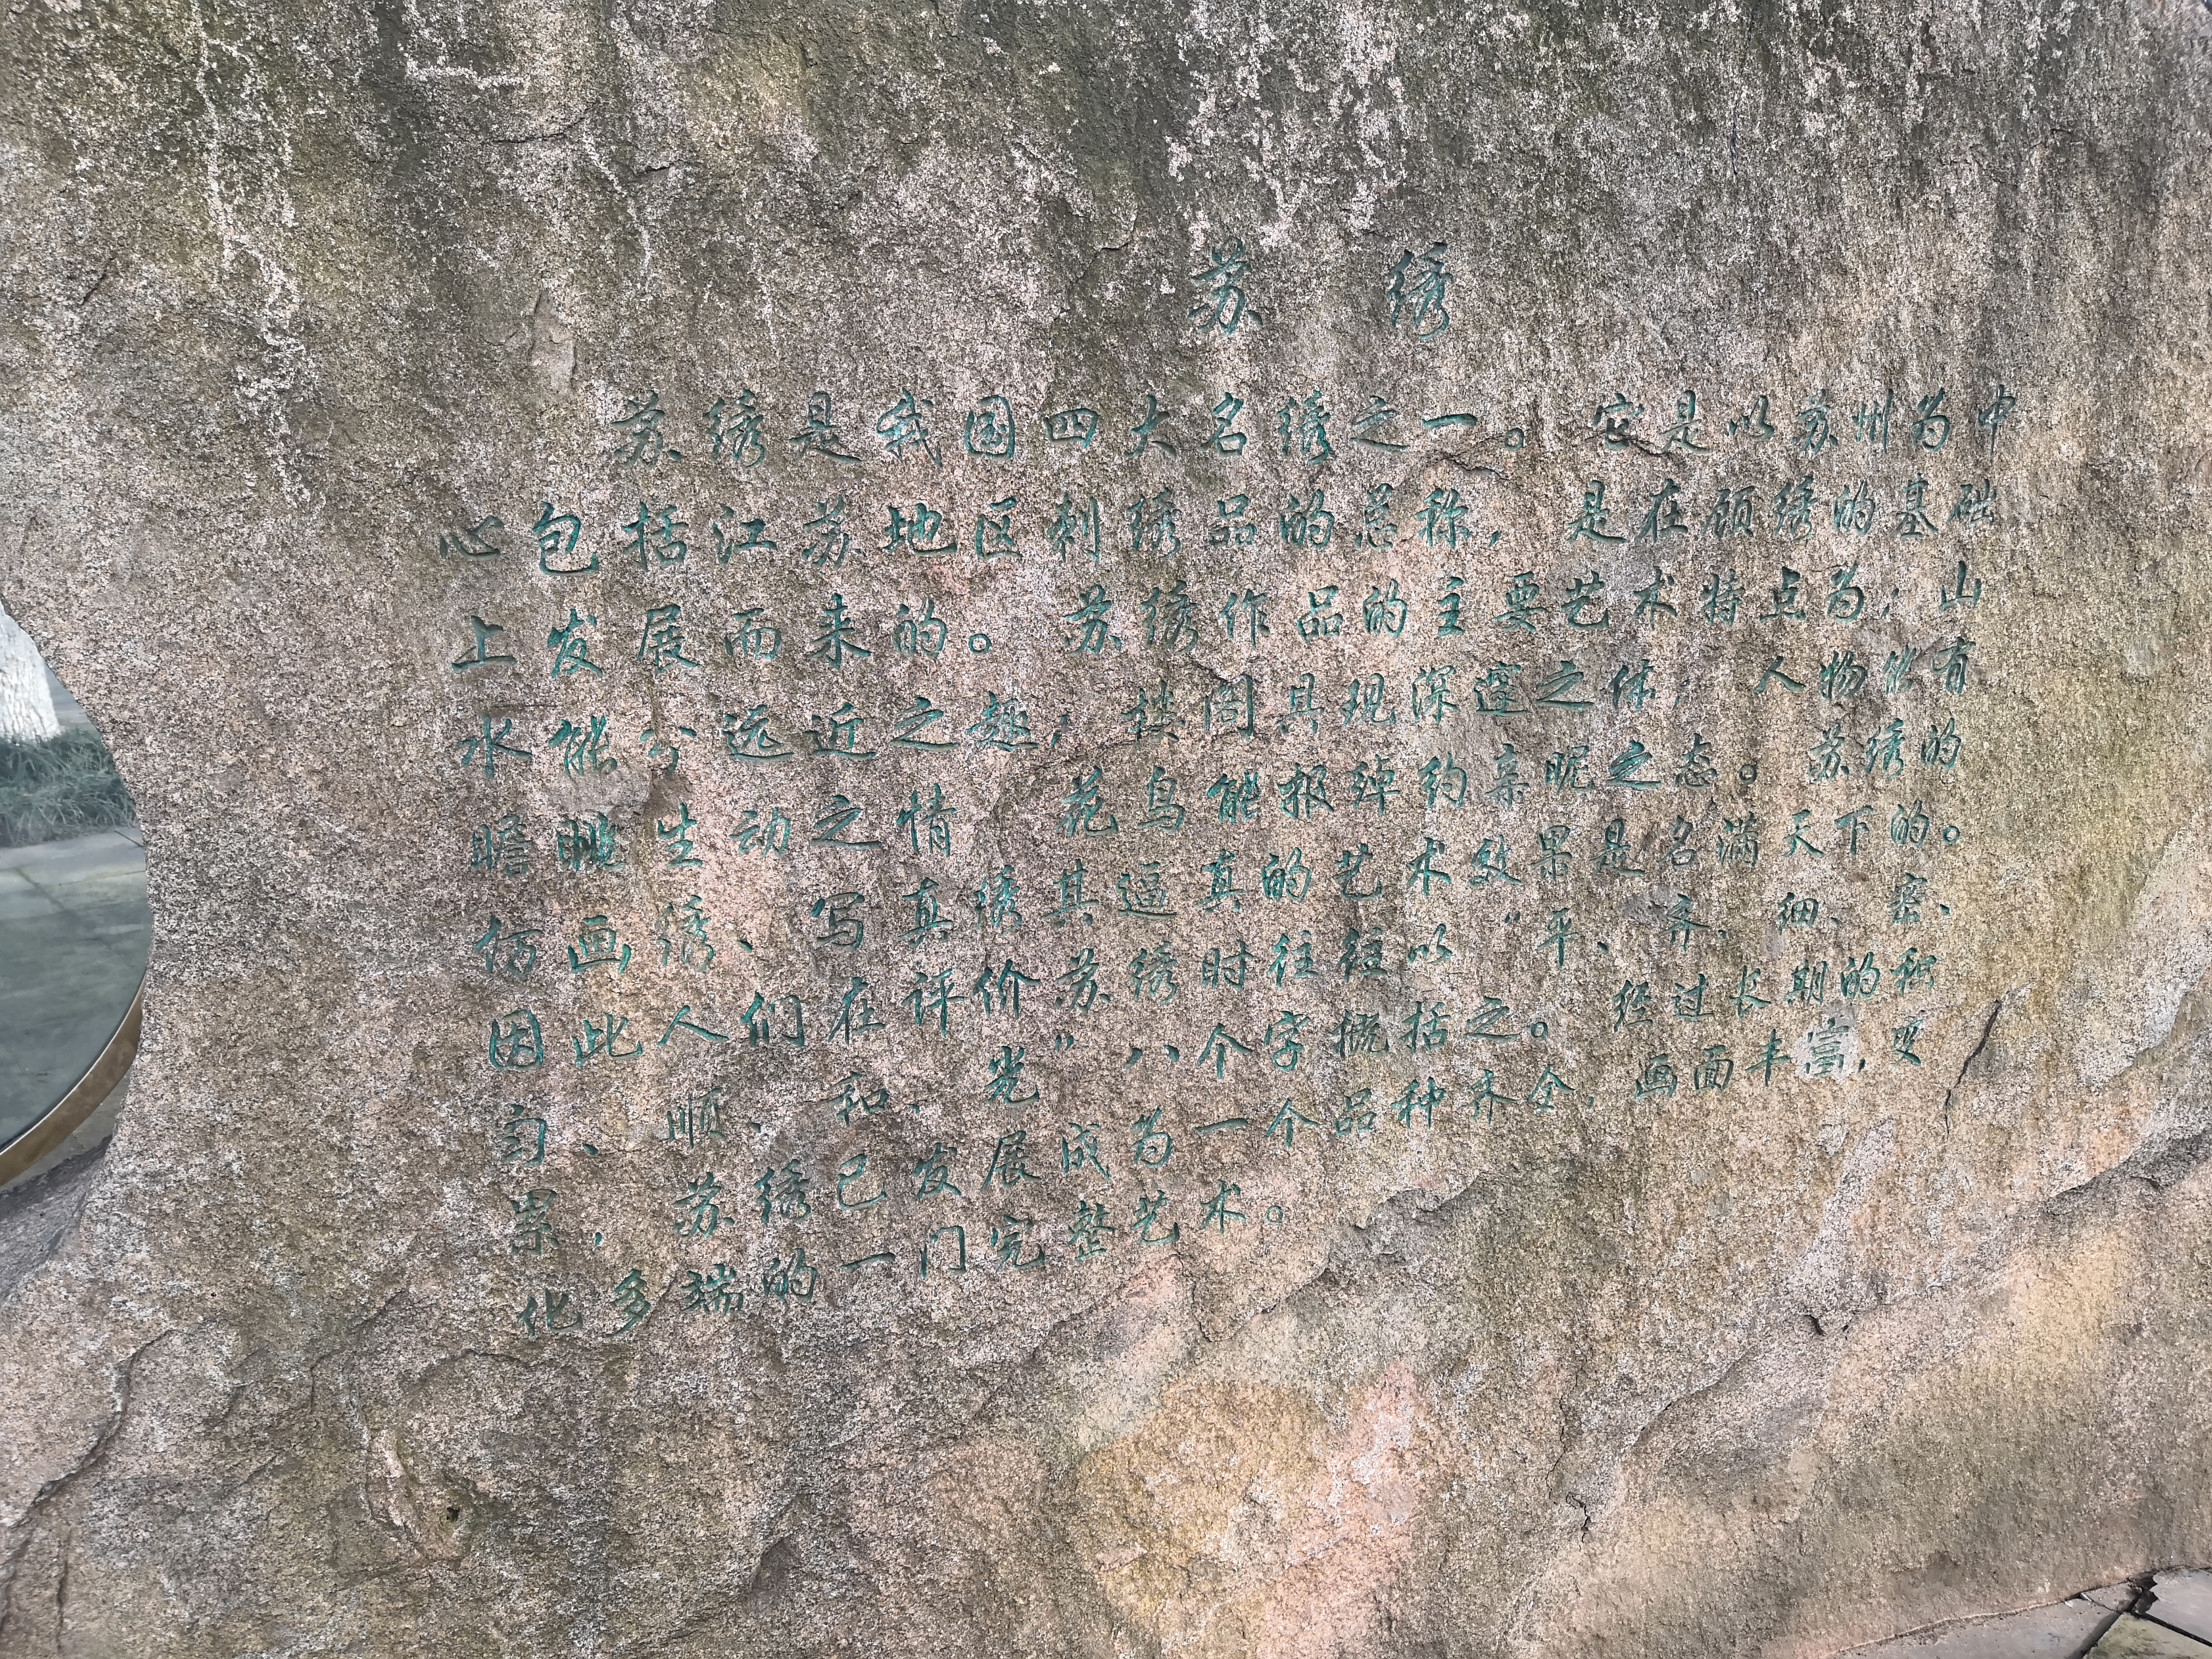 苏绣
苏绣是我国四大名绣之一。它是以苏州为中
心包括江苏地区刺绣品的总称，是在顾绣的基础
上发展而来的。苏绣作品的主要艺术特点为：山
水能分远近之趣；楼阁具现深邃之体；人物能有
瞻眺生动之情；花鸟能报绰约亲昵之态。苏绣的
仿画绣、写真绣其逼真的艺术效果是名满天下的。
因此人们在评价苏绣时往往以“平、齐、细、密、
匀、顺、和、光”八个字概括之。经过长期的积
累，苏绣已发展成为一个品种齐全，画面丰富，变
化多端的一门完整艺术。